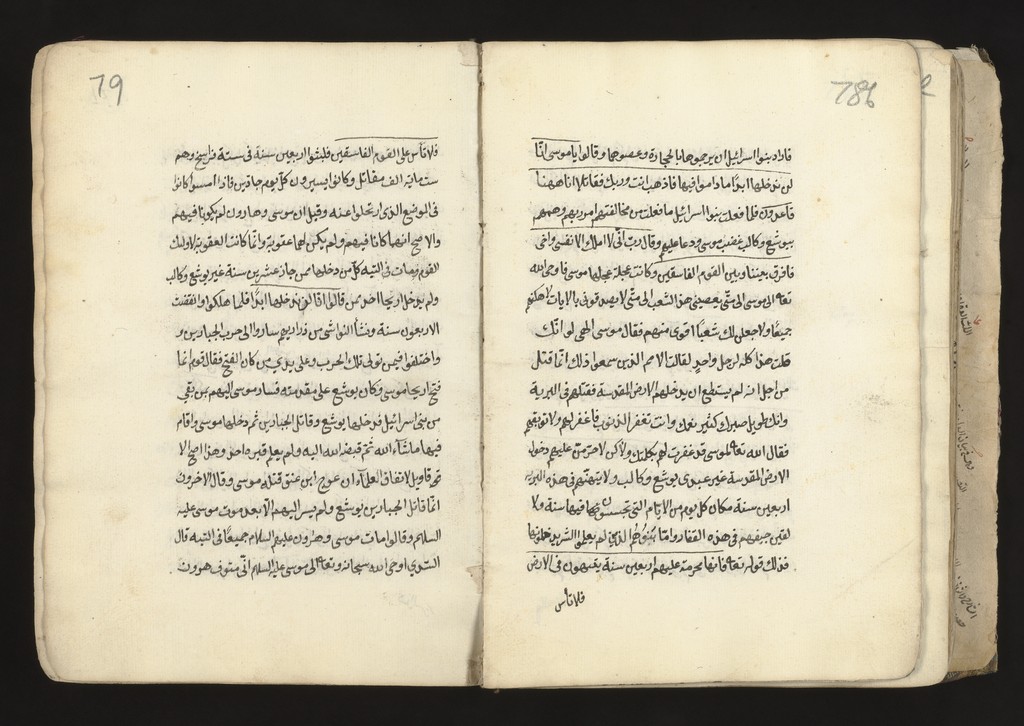 78b
فاراد بنوا اسرائيل ان يرجموهما بالحجارة وعصوهما وقالوا يا موسى انّا
لن ندخلها ابدًا ما داموا فيها فاذهب انت وربك فقاتلا انا ههنا
قاعدون فلما فعلت بنوا اسرائيل ما فعلت من مخالفتهم امر ربهم وهمهم
بيوشع وكالب غضب موسى ودعا عليهم وقال رب انّى لا املك الا نفسى واخى
فافرق بيننا وبين القوم الفاسقين وكانت عجلة عجلها موسى فاوحى الله
تعه الى موسى الى متى يعصينى هذا الشعب الى متى لا يصدقونى بالايات لاهلكنهم
جميعًا ولاجعلن لك شعبًا اقوى منهم فقال موسى الهى لو انّك
قتلت هذا كله لرجل واحدٍ لقالت الامم الذين سمعوا ذلك انّما قتل
من اجل انه لم يستطع ان يدخلهم الارض المقدسة فقتلهم فى البرية
وانك طويل صبرك كثير نعمك وانت تغفر الذنوب فاغفر لهم ولا توبقهم
فقال الله تعه لموسى قد غفرت لهم بكلمتك ولاكن لاحرمن عليهم دخول
الارض المقدسة غير عبدى يوشع وكالب ولاتيهنّهم فى هذه البرية
اربعين سنة مكان كل يوم من الايام التى تجسسوا فيها سنة ولا
لقين جيفهم فى هذه القفار وامّا بنوهم الذين لم يعلموا الشر يدخلونها
فذلك قوله تعه فانها محرمة عليهم اربعين سنة يتيهون فى الارض
فلا تأس
79
فلا تأس على القوم الفاسقين فلبثوا اربعين سنة فى ستة فراسخ وهم
ست مائة الف مقاتل وكانوا يسيرون كل يوم جادين فاذا امسوا كانوا
فى الموضع الذى ارتحلوا عنه وقيل ان موسى وهارون لم يكونا فيهم
والاصح انهما كانا فيهم ولم يكن لهما عقوبة وانّما كانت العقوبة لاولئك
القوم ومات فى التيه كل من دخلها ممن جاز عشرين سنة غير يوشع وكالب
ولم يدخل اريحا احد ممن قالوا انّا لن ندخلها ابدًا فلما هلكوا وانقضت
الاربعون سنة ونشأ النواشى من ذراريهم ساروا الى حرب الجبارين و
واختلفوا فيمن تولى تلك الحرب وعلى يدى من كان الفتح فقال قوم انما
فتح اريحا موسى وكان يوشع على مقدمته فسار موسى اليهم بمن بقى
من بنى اسرائيل فدخلها يوشع وقاتل الجبارين ثم دخلها موسى واقام
فيها ما شاء الله ثمّ قبضه الله اليه ولم يعلم قبره احد وهذا اصح الا
قاويل لاتفاق العلمآء ان عوج ابن عنق قتله موسى وقال الاخرون
انّما قاتل الجبارين يوشع ولم يسر اليهم الا بعد موت موسى عليه
السلم وقالوا مات موسى وهرون عليهم السلام جميعًا فى التيه قال
السدى اوحى الله سبحانه وتعه الى موسى عليه السلام انّى متوف هرون